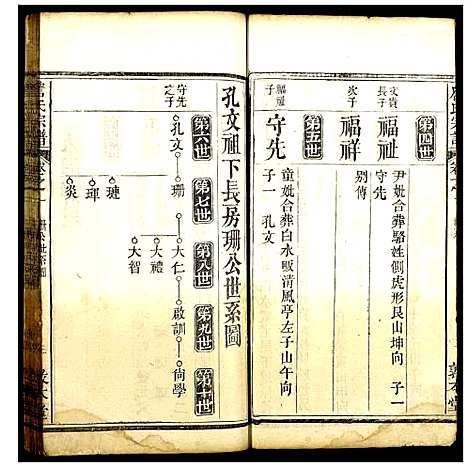 第四世
文貴長子
福祉
尹妣合葬駱姓側虎形艮山坤向 子一
守先
次子
福祥
别傳
第五世
福祉
守先
童妣合葬白水畈清風亭左子山午向
子一 孔文
敦本堂
孔文祖下長房珊公世系圖
第六世 第七世 第八世 第九世 第十世
守先之子
孔文 珊 大仁 啟訓 尚學
大禮
大智
璉
琿
炎
氏宗譜
敦本堂